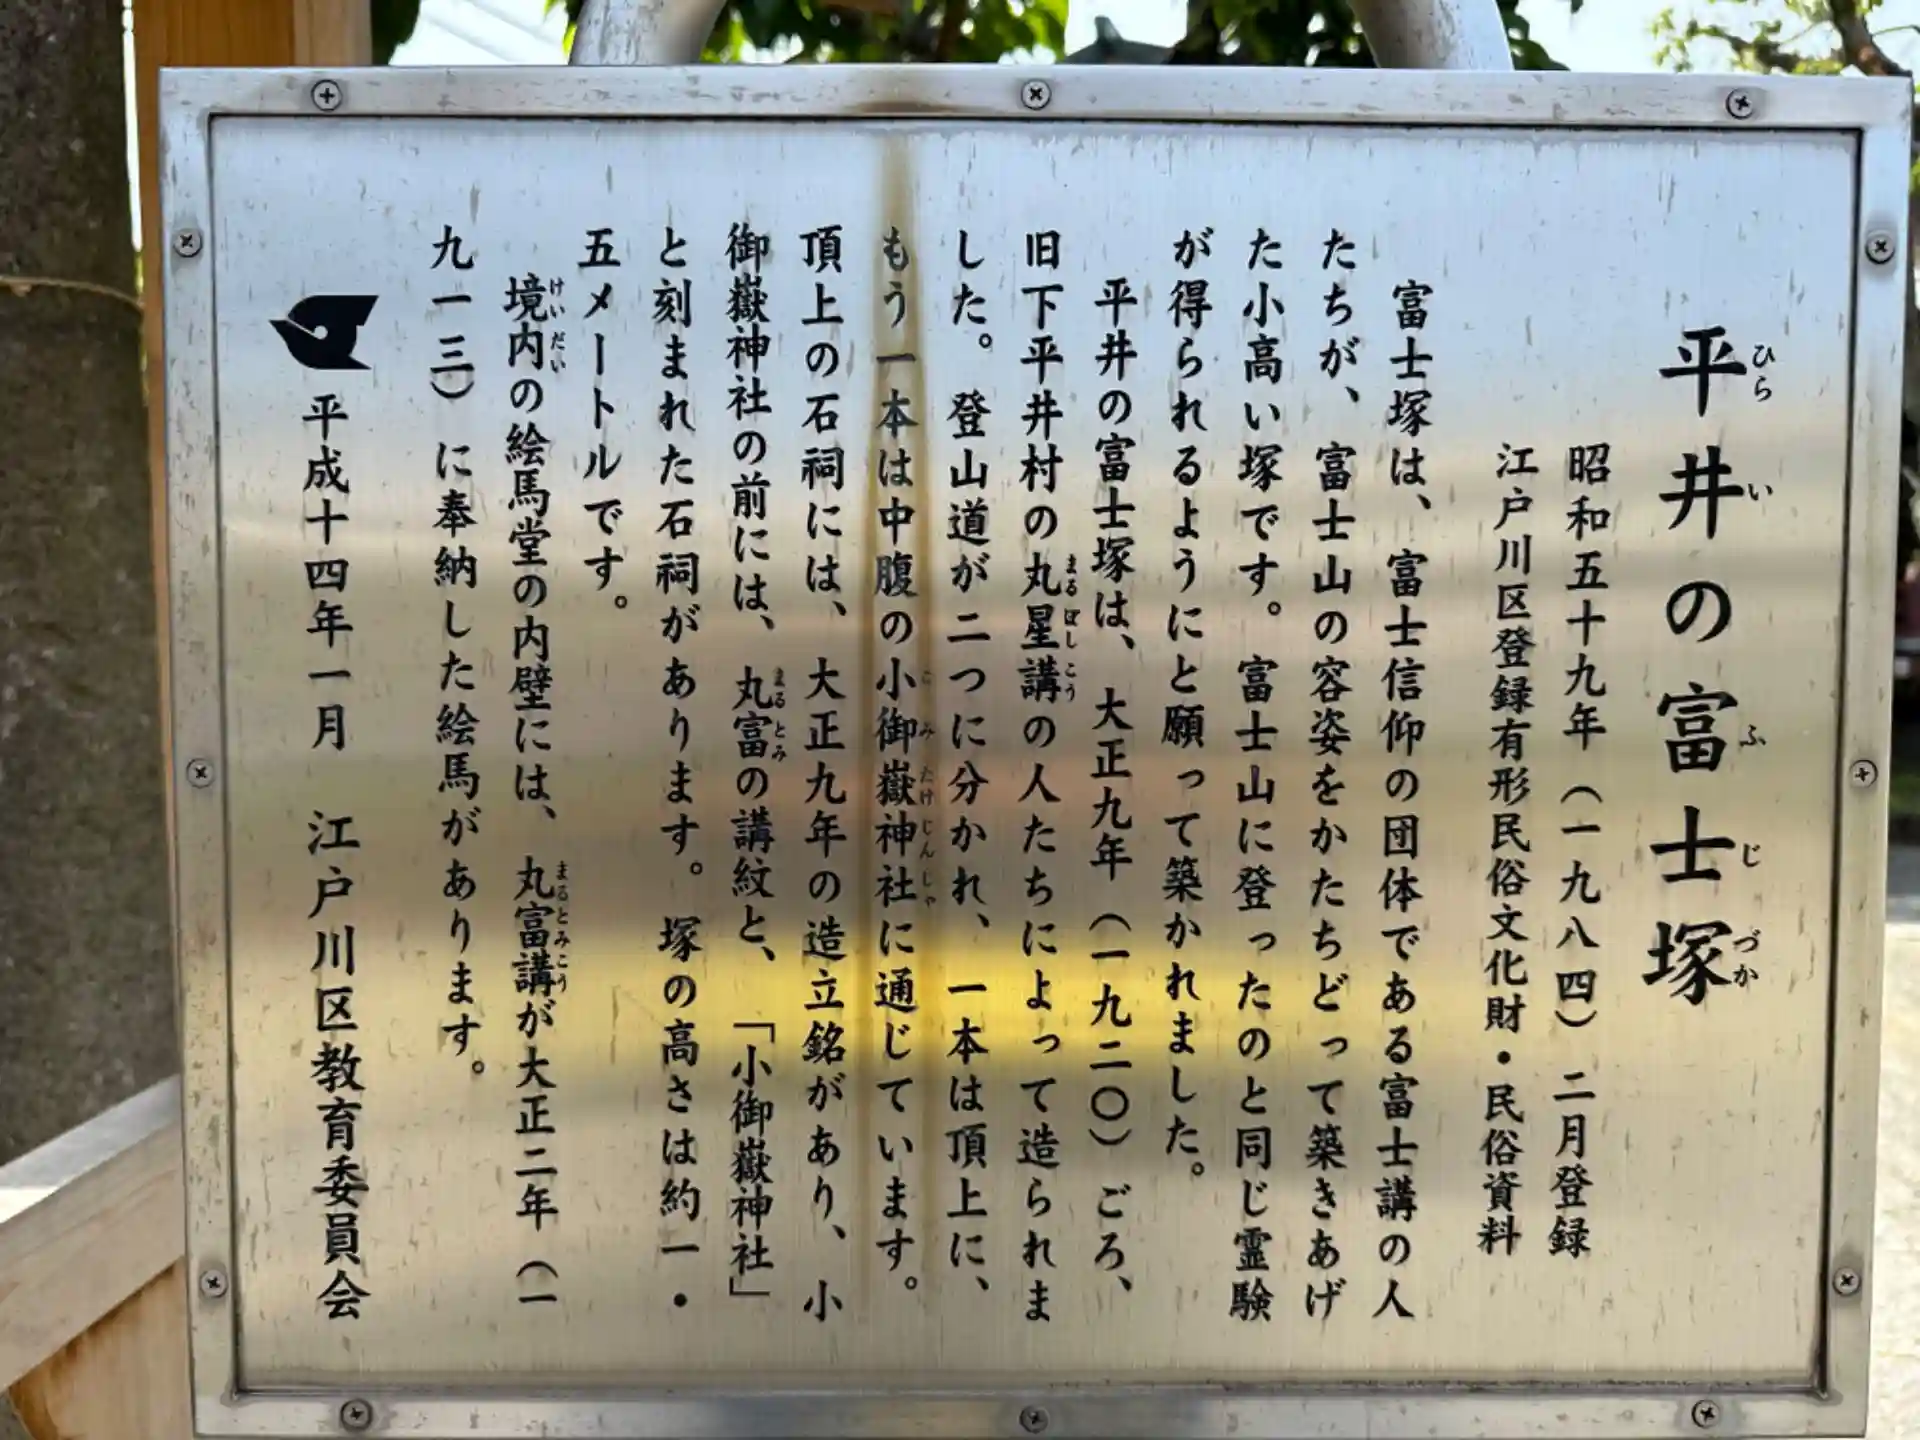 平井の富士塚
ひら い ふ じ づか
昭和五十九年（一九八四）二月登録
江戸川区登録有形民俗文化財・民俗資料
富士塚は、富士信仰の団体である富士講の人
たちが、富士山の容姿をかたちどって築きあげ
た小高い塚です。富士山に登ったのと同じ霊験
が得られるようにと願って築かれました。
平井の富士塚は、大正九年（一九二〇）ごろ、
旧下平井村の丸星講の人たちによって造られま
まるぼしこう
した。登山道が二つに分かれ、一本は頂上に、
もう一本は中腹の小御嶽神社に通じています。
こみたけじんしゃ
頂上の石祠には、大正九年の造立銘があり、小
御嶽神社の前には、丸富の講紋と、「小御嶽神社」
まるとみ
と刻まれた石祠があります。塚の高さは約一・
五メートルです。
境内の絵馬堂の内壁には、丸富講が大正二年（一
けいだい まるとみこう
九一三）に奉納した絵馬があります。
平成十四年一月 江戸川区教育委員会